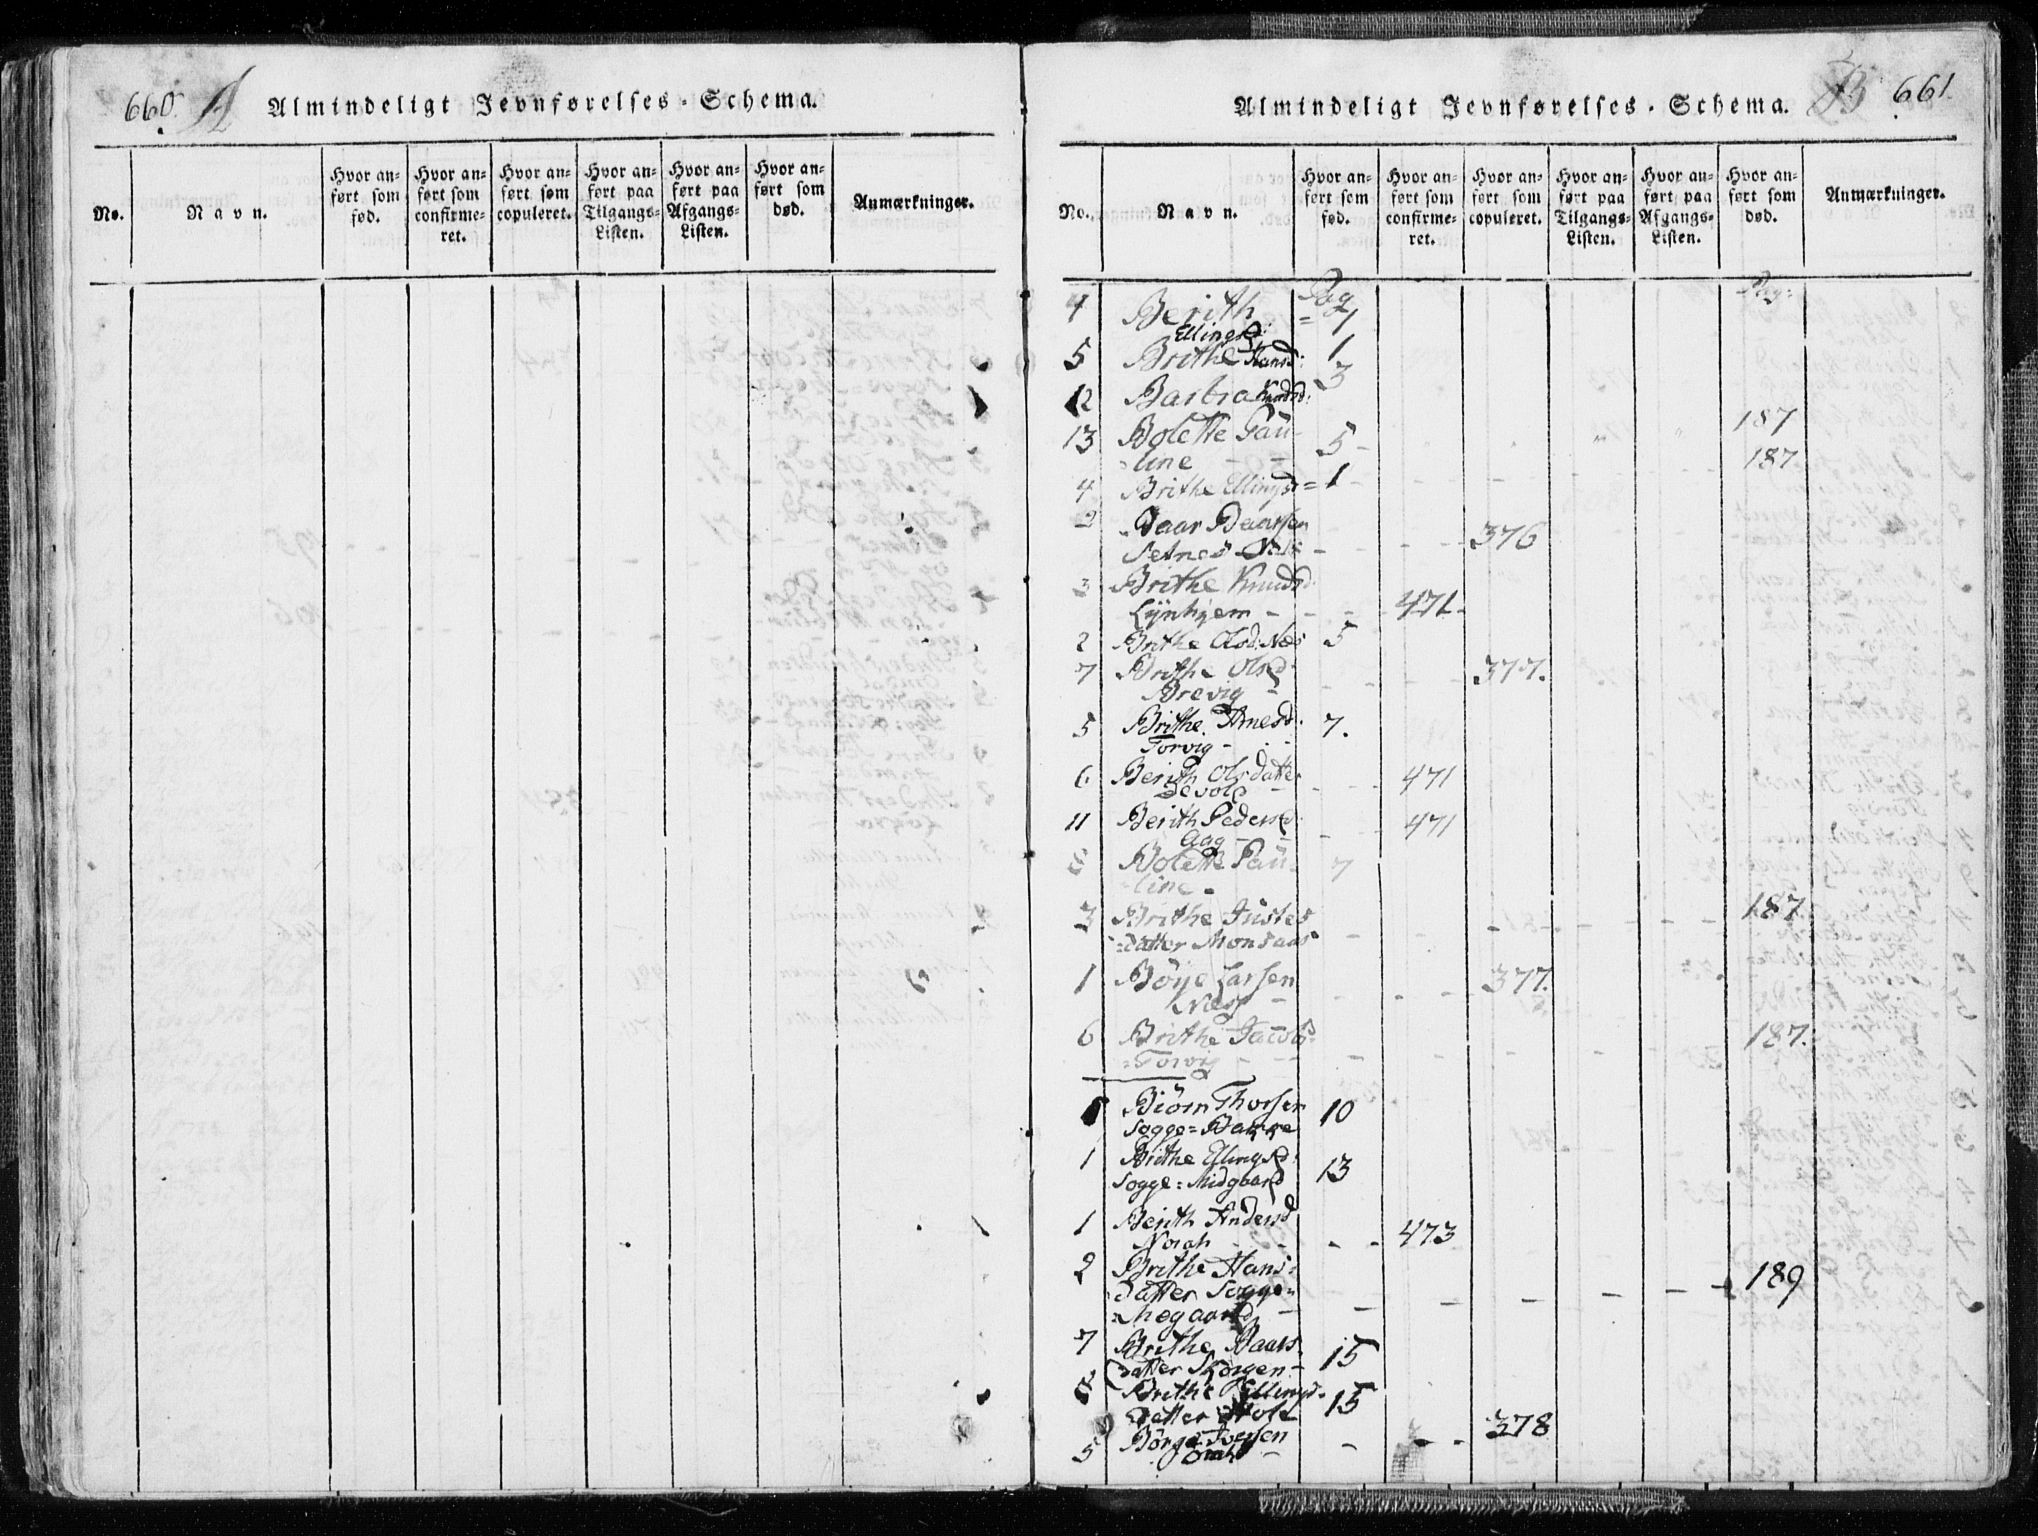 660. A Almindeligt Jevnførelses-Schema.
No.
Navn.
Hvor an-
ført som
fød.
Hvor an-
ført som
confirme-
ret.
Hvor an-
ført som
copuleret.
Hvor an-
ført paa
Tilgangs-
Listen.
Hvor an-
ført paa
Afgangs-
Listen.
Hvor an-
ført som
død.
Anmærkninger.
Almindeligt Jevnførelses-Schema. B 661.
No.
Navn.
Hvor an-
ført som
fød.
Hvor an-
ført som
confirme-
ret.
Hvor an-
ført som
copuleret.
Hvor an-
ført paa
Tilgangs-
Listen.
Hvor an-
ført paa
Afgangs-
Listen.
Hvor an-
ført som
død.
Anmærkninger.
Pag Pag:
4 Berith = 1
Ellingsd:
5 Brithe Hansd: 1
12 Barbra Knudsd: 3
13 Bolette Pau- 5 - 187
=line - - 187
4 Brithe Ellingsd = 1 - - -
2 Baar Baarsen
Setnes - - - - 376
3 Brithe Knudsd:
Lÿnhjem - - - 471 -
2 Brithe Olsd: Næs 5
7 Brithe Olsd: 377.
Brevig - - - - -
5 Brithe Arnesd: 7.
Torvig - - -
6 Berith Olsdatter 471
Devold - - - -
11 Berith Pedersd: 471
Aag - - - -
Bolette Pau- 7
=line -
3 Brithe Justes 187
=datter Monsaas - - - - - - -
1 Böÿe Larsen 377.
Næss - - - -
6 Brithe Jacobs 187.
=Torvig - - - - - - -
1 Biörn Thorsen 10
Sogge=Bakke
1 Brithe Ellingsd: 13
Sogge=Midgaard
1 Berith Andersd
Norah - - - 473
2 Brithe Hans= 189
datter Sogge=
=Megaard - - - - - -
7 Brithe Baars
datter Skorgen - 15
Brithe Ellings- 15
datter Hole
Börge Iversen 378
5 - - - -